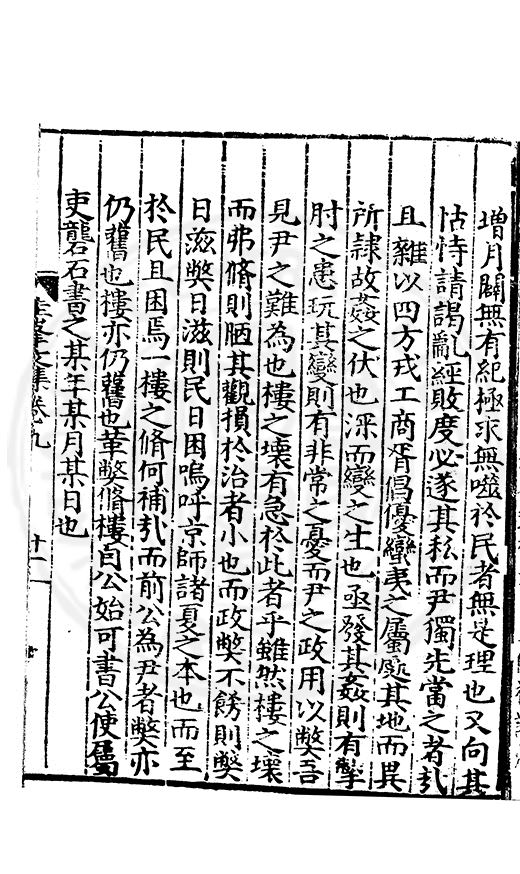 增月闢無有紀極求無噬於民者無是理也又向其
怙恃請謁亂經敗度必遂其私而尹獨先當之者㢤
且雜以四方戎工商胥倡優蠻夷之屬廁其地而異
所隷故姦之伏也深而變之生也亟發其姦則有掣
肘之患玩其變則有非常之憂而尹之政用以弊吾
見尹之難為也樓之壞有急於此者乎雖然樓之壞
而弗脩則陋其觀損於治者小也而政弊不餝則弊
日滋弊日滋則民日困嗚呼京師諸夏之本也而至
於民且困焉一樓之脩何補㢤而前公為尹者弊亦
仍舊也樓亦仍舊也革弊脩樓自公始可書公使屬
吏礱石書之某年某月某日也
文集卷九
十一